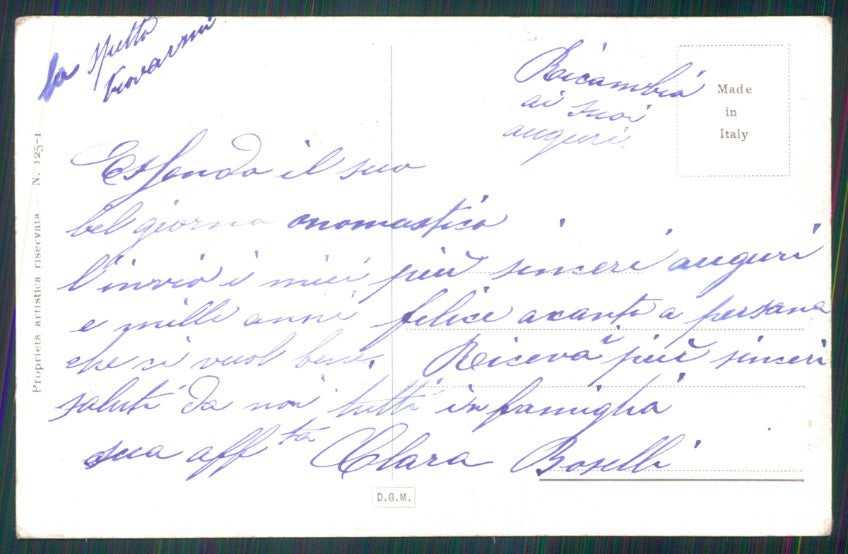 la spetto
Giovanni
Ricambia
ai suoi
auguri.
Made
in
Italy
Essendo il suo
bel giorno onomastico
l'invio i miei più sinceri auguri
e milli anni felice acanto a persana
che si vuol bene. Riceva i più sinceri
saluti da noi tutti in famiglia
sua affta Clara Boselli
D.G.M.
Proprietà artistica riservata - N. 125-1